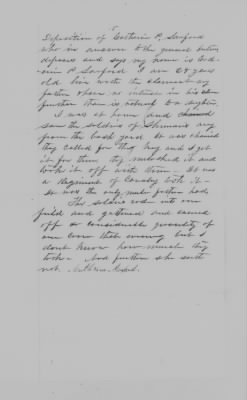 5
Deposition of Catherine P. Sanford
who in answer to the general Interrogatory
deposes and says my name is Cath-
erine P. Sanford I am 25 years
old live with the claimant my
father have no interest in his claim
further than is natural to a daughter.
I was at home and
saw the soldiers of Shermans army
from the back yard It was chained
they called for the key and I got
it for them they unlocked it and
took it off with them. It was
a Regiment of Cavalry took it
It was the only mule father had
The soldiers rode into our
field and gathered and carried
off a considerable quantity of
our corn that evening but I
dont know how much they
took. And further she saith
not.